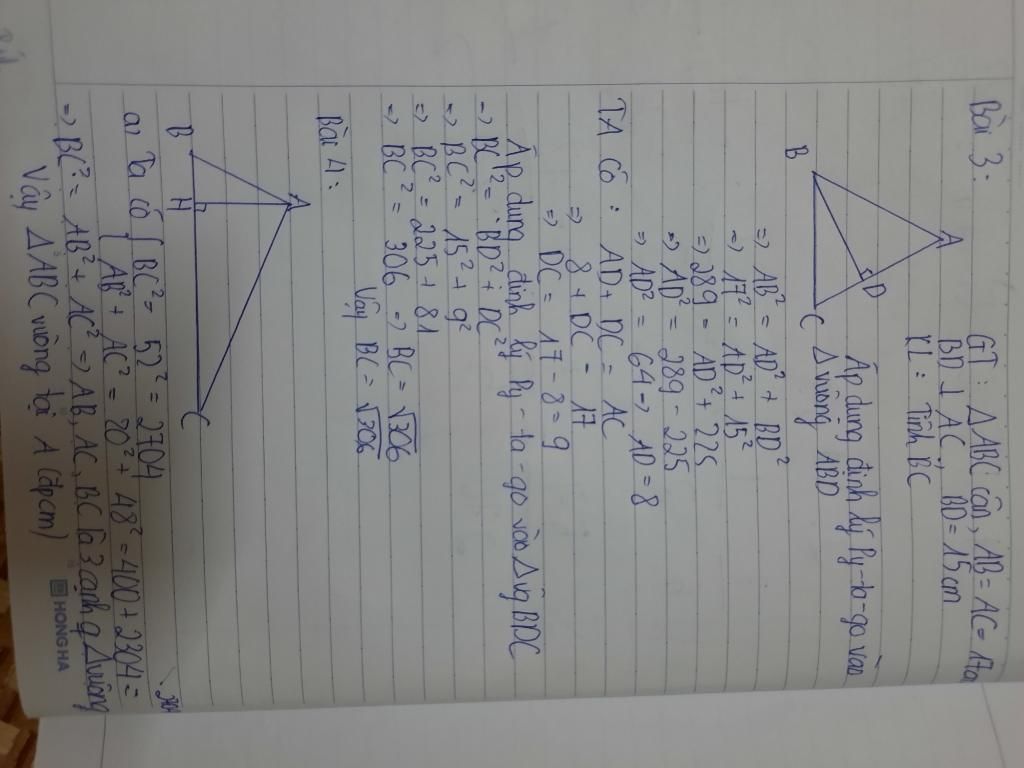 Bài 3:
GT: ΔABC cân, AB = AC = 17cm
BD ⊥ AC, BD = 15cm
KL: Tính BC
A
D
B
C
Áp dụng định lý Py-ta-go vào
Δ vuông ABD
=> AB² = AD² + BD²
=> 17² = AD² + 15²
=> 289 = AD² + 225
=> AD² = 289 - 225
=> AD² = 64 => AD = 8
TA Có: AD + DC = AC
=> 8 + DC = 17
=> DC = 17 - 8 = 9
Áp dụng định lý Py-ta-go vào Δvg BDC
=> BC² = BD² + DC²
=> BC² = 15² + 9²
=> BC² = 225 + 81
=> BC² = 306 => BC = √306
Vậy BC = √306
Bài 4:
A
B
H
C
a, Ta có { BC² = 52² = 2704
AB² + AC² = 20² + 48² = 400 + 2304 =
=> BC² = AB² + AC² => AB, AC, BC là 3 cạnh of Δvuông
Vậy ΔABC vuông tại A (đpcm)
HONG HA